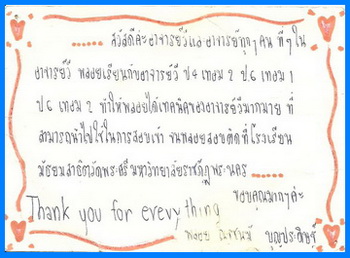 สวัสดีค่ะอาจารย์วีและอาจารย์ทุกๆคน ที่ๆใน
อาจารย์วี พลอยเรียนกับอาจารย์วี ป4 เทอม 2 ป6 เทอม 1
ป6 เทอม 2 ทำให้พลอยได้เทคนิคของอาจารย์วีมากมาย ที่
สามารถนำไปใช้ในการสอบเข้า จนพลอยสอบติดที่โรงเรียน
มัธยมสาธิตวัดพระศรีมหาธาตุ มหาวิทยาลัยราชภัฏพระนคร
ขอบคุณมากๆค่ะ
Thank you for everything
พลอย บุญประดิษฐ์